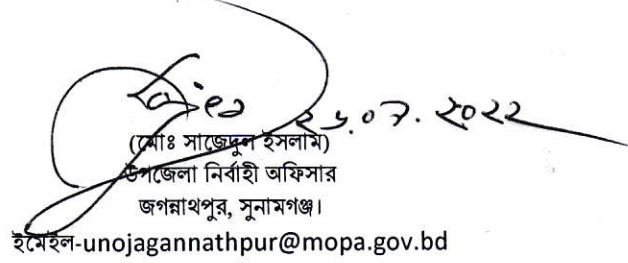 ২১.০৭.২০২২
(মোঃ সাজেদুল ইসলাম)
উপজেলা নির্বাহী অফিসার
জগন্নাথপুর, সুনামগঞ্জ।
ইমেইল-unojagannathpur@mopa.gov.bd